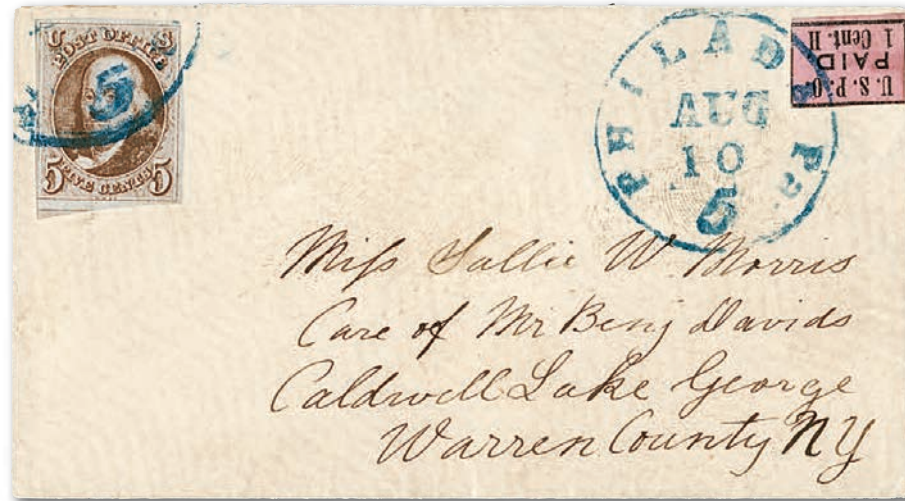 U S
POST OFFICE
5
5 FIVE CENTS 5
PHILADA Pa.
AUG
10
5
U. S. P. O.
PAID
1 Cent. H
Miss Sallie W. Morris
Care of Mr Benj Davids
Caldwell Lake George
Warren County NY